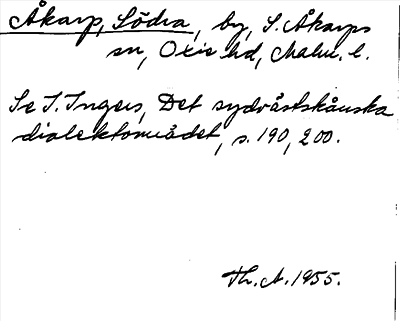 Åkarp, Södra, by, S. Åkarps
sn, Oxie hd, Malm. l.
Se I. Ingers, Det sydvästskånska
dialektområdet, s. 190, 200.
Th. A. 1955.